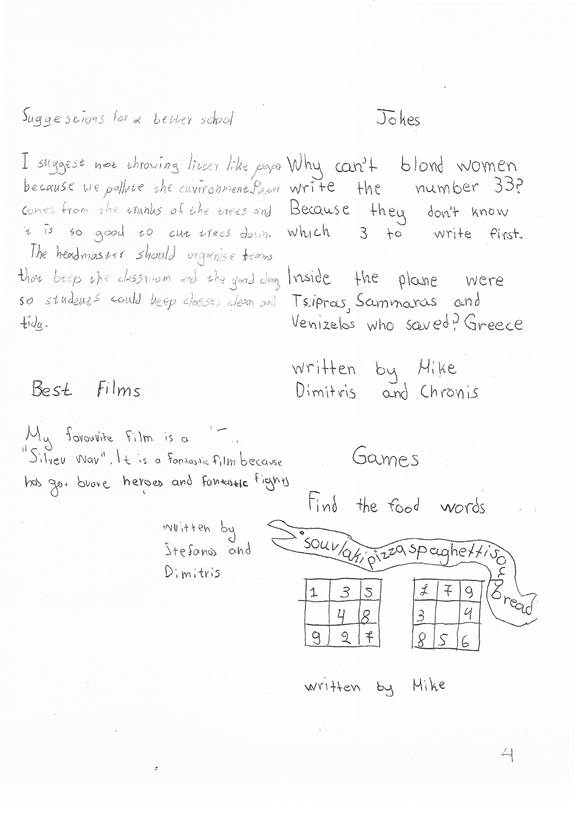 Suggestions for a better school
I suggest not throwing litter like paper
because we pollute the environment. Paper
comes from the trunks of the trees and
it is so good to cut trees down.
The headmaster should organise teams
that keep the classroom and the yard clean
so students could keep classes clean and
tidy.
Best Films
My favourite film is a
"Silver War". It is a fantastic film because
has got brave heroes and fantastic fights
written by
Stefanos and
Dimitris
Jokes
Why can't blond women
write the number 33?
Because they don't know
which 3 to write first.
Inside the plane were
Tsipras, Sammaras and
Venizelos who saved? Greece
written by Mike
Dimitris and Chronis
Games
Find the food words
souvlakipizzaspaghettisoupbread
1 3 5
4 8
9 2 7
1 7 9
3 4
8 5 6
written by Mike
4